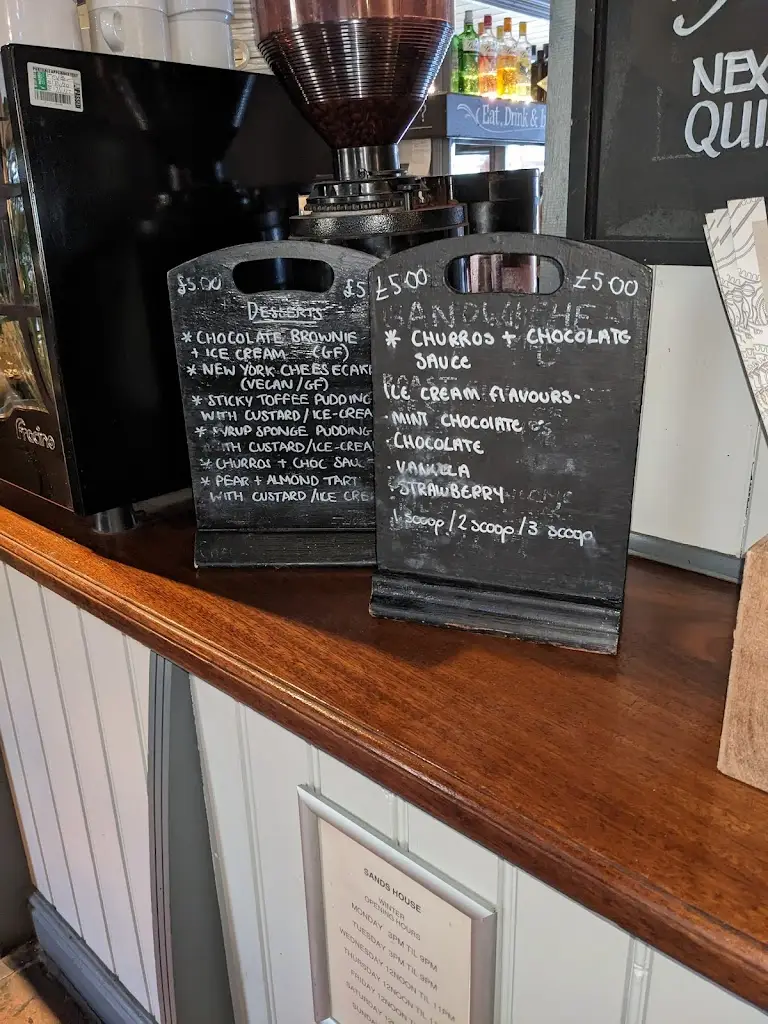 Eat, Drink & B
NEX
QUI
£5.00
£5
DESSERTS
* CHOCOLATE BROWNIE
+ ICE CREAM (GF)
* NEW YORK CHEESECAKE
(VEGAN/GF)
* STICKY TOFFEE PUDDING
WITH CUSTARD/ICE-CREA
* SYRUP SPONGE PUDDING
WITH CUSTARD/ICE-CREA
* CHURROS + CHOC SAUC
* PEAR + ALMOND TART
WITH CUSTARD/ICE CRE
£5.00
£5.00
SANDWICHE
* CHURROS + CHOCOLATE
SAUCE
ICE CREAM FLAVOURS-
- MINT CHOCOLATE
- CHOCOLATE
- VANILLA
- STRAWBERRY
1 scoop/2 scoop/3 scoop
Fracino
SANDS HOUSE
WINTER
OPENING HOURS
MONDAY 3PM TIL 9PM
TUESDAY 3PM TIL 9PM
WEDNESDAY 12NOON TIL 11PM
THURSDAY 12NOON TIL
FRIDAY 12NOON TIL
SATURDAY 12
SUND